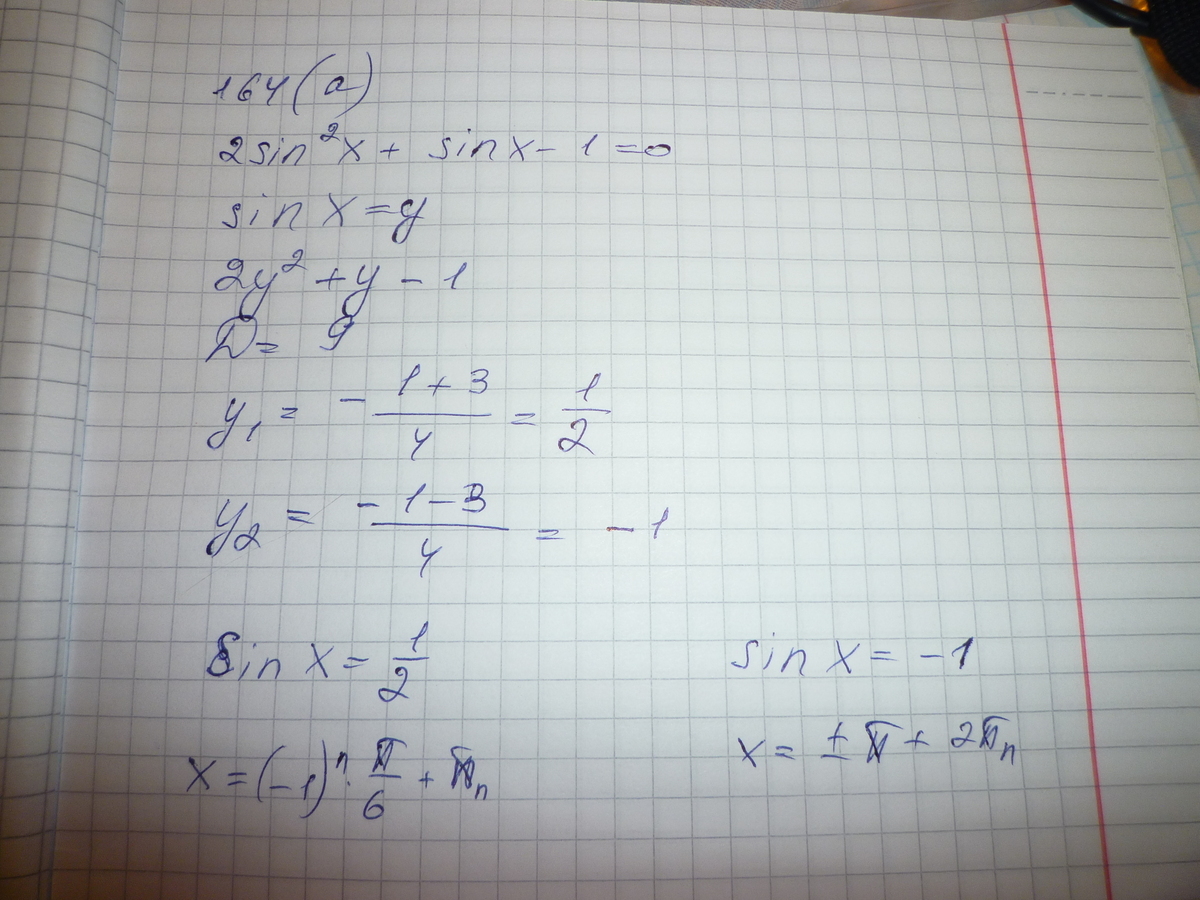 164(a)
2sin²x + sinx - 1 = 0
sin x = y
2y² + y - 1
D = 9
y₁ = - 1 + 3 / 4 = 1/2
y₂ = - 1 - 3 / 4 = - 1
Sin x = 1/2
sin x = - 1
x = (-1)ⁿ · π/6 + πn
x = ± π + 2πn